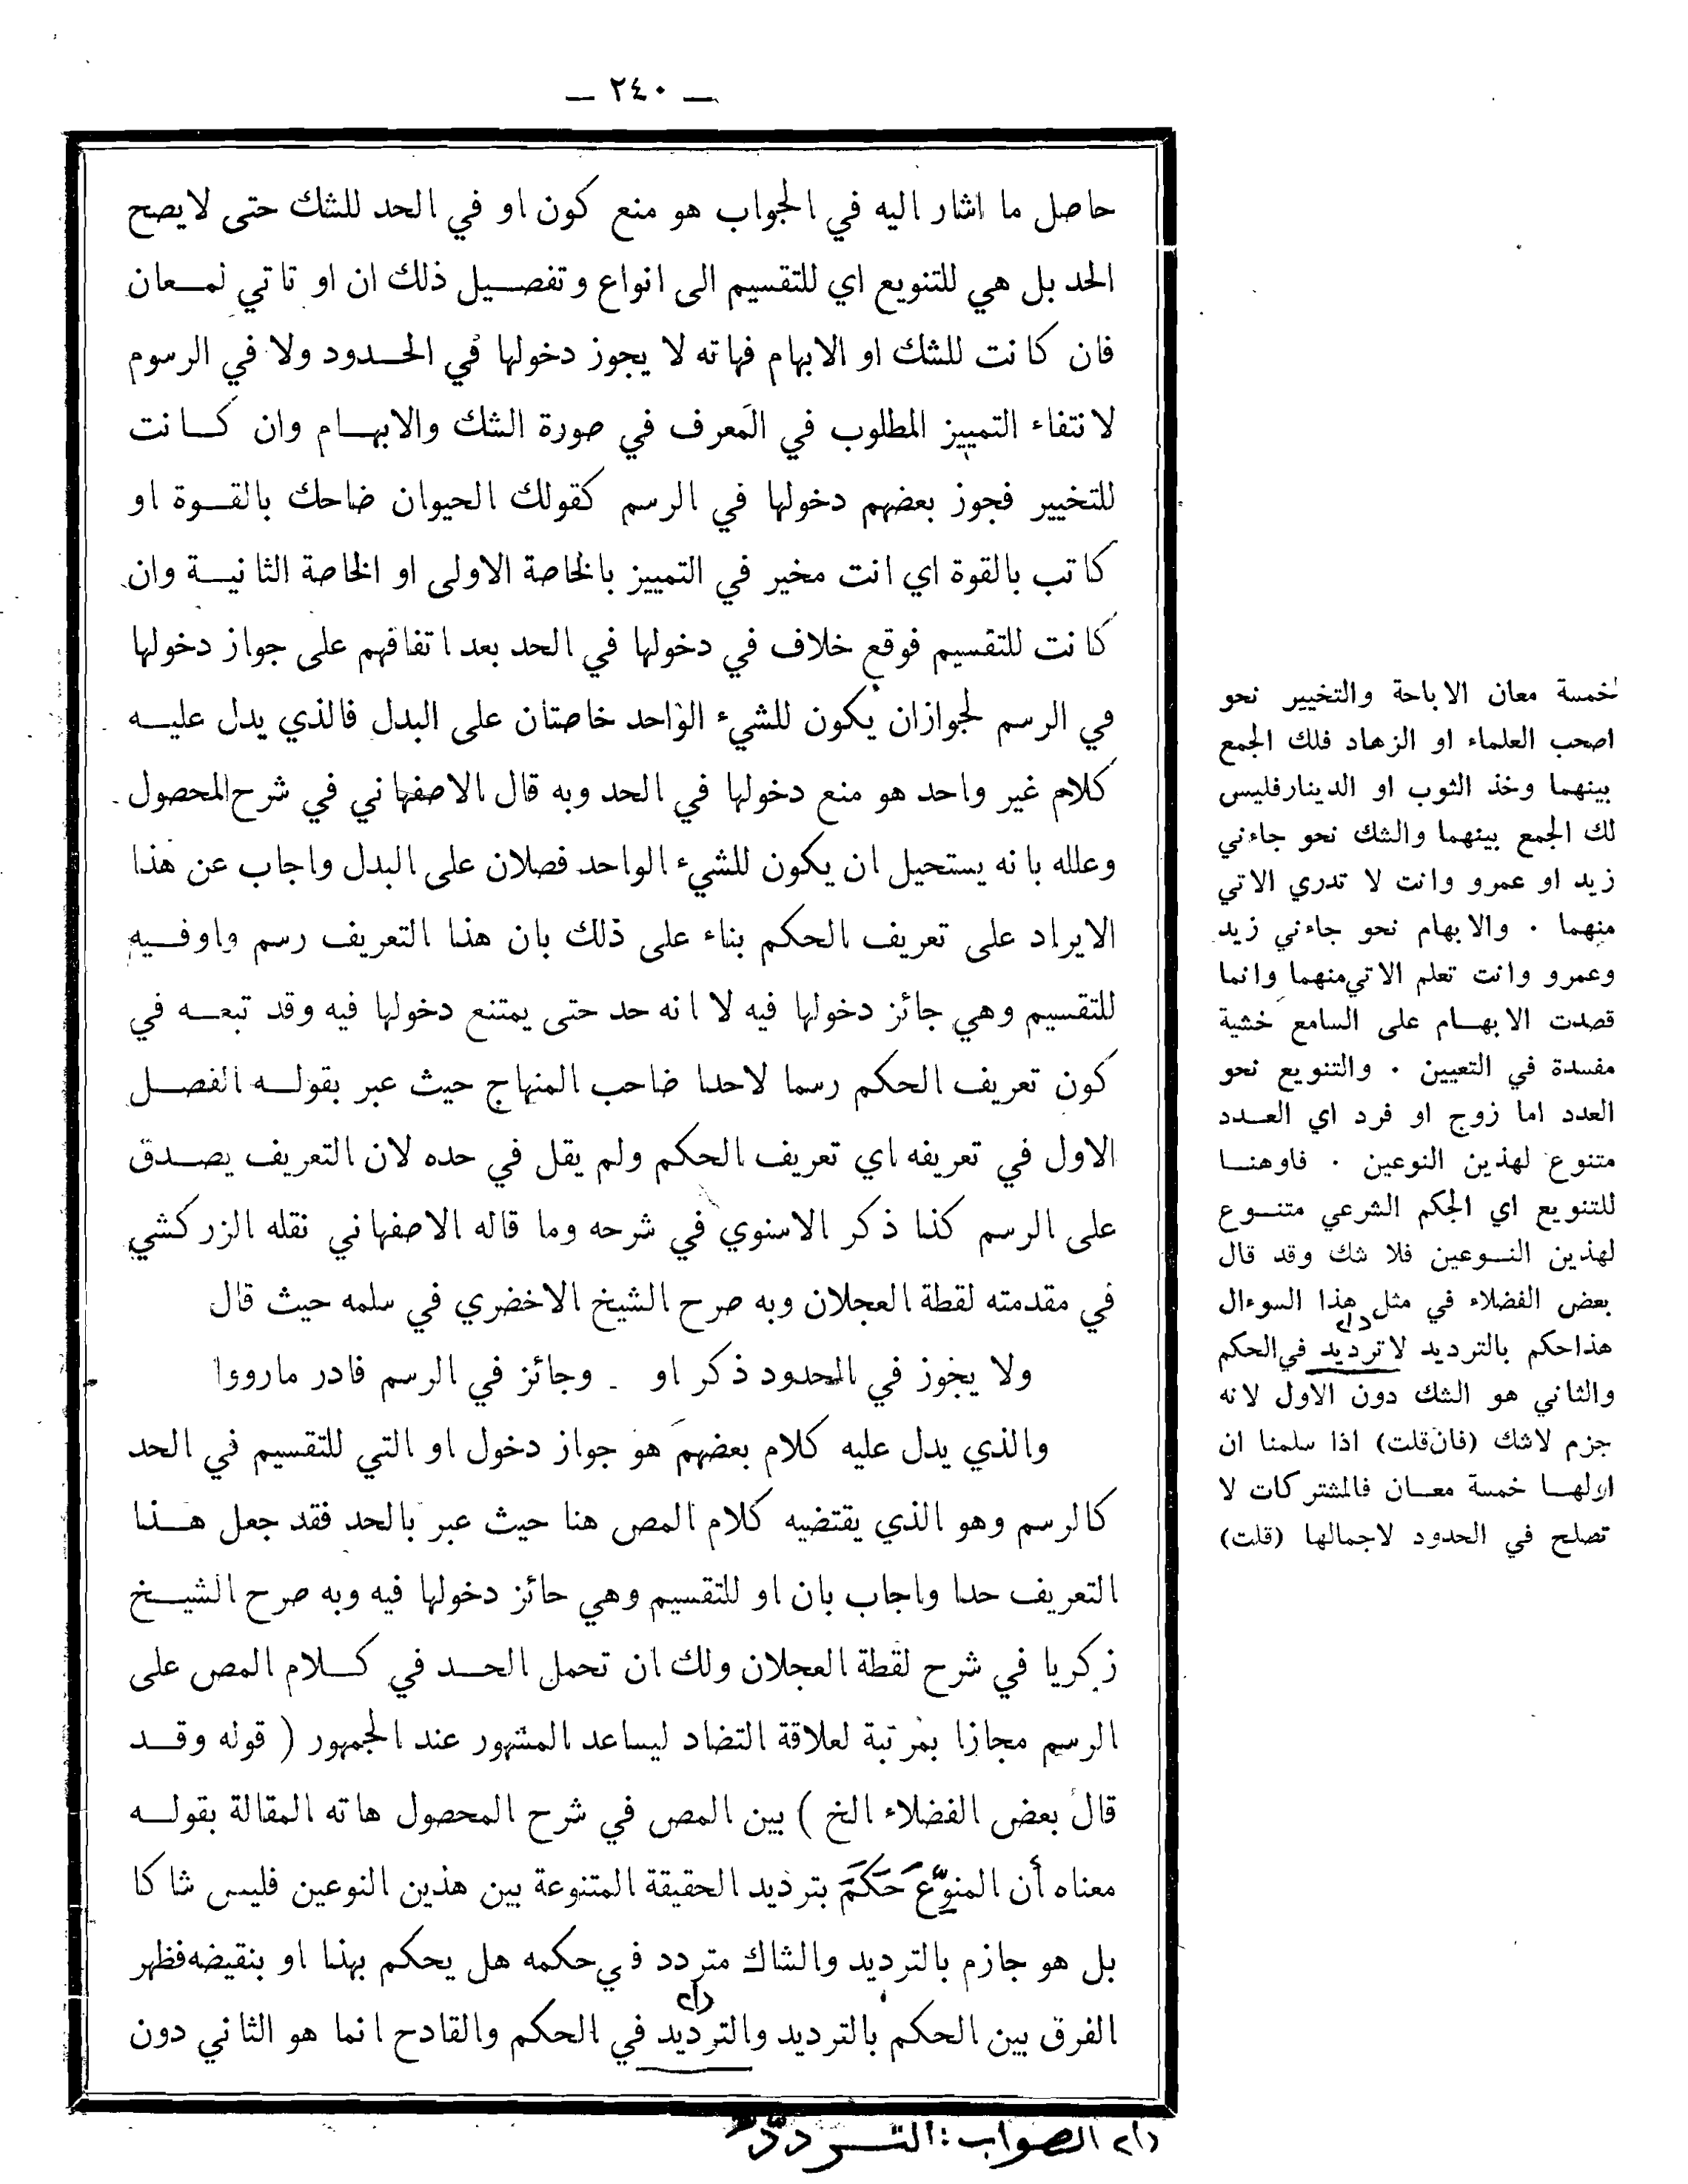 — ٢٤٠ —
حاصل ما اشار اليه في الجواب هو منع كون او في الحد للشك حتى لا يصح
الحد بل هي للتنويع اي للتقسيم الى انواع وتفصيل ذلك ان او تاتي لمعان
فان كانت للشك او الابهام فهاته لا يجوز دخولها في الحدود ولا في الرسوم
لانتفاء التمييز المطلوب في المعرف في صورة الشك والابهام وان كانت
للتخيير فجوز بعضهم دخولها في الرسم كقولك الحيوان ضاحك بالقوة او
كاتب بالقوة اي انت مخير في التمييز بالخاصة الاولى او الخاصة الثانية وان
كانت للتقسيم فوقع خلاف في دخولها في الحد بعد اتفاقهم على جواز دخولها
في الرسم لجوازان يكون للشيء الواحد خاصتان على البدل فالذي يدل عليه
كلام غير واحد هو منع دخولها في الحد وبه قال الاصفهاني في شرح المحصول
وعلله بانه يستحيل ان يكون للشيء الواحد فصلان على البدل واجاب عن هذا
الايراد على تعريف الحكم بناء على ذلك بان هذا التعريف رسم واوفيه
للتقسيم وهي جائز دخولها فيه لا انه حد حتى يمتنع دخولها فيه وقد تبعه في
كون تعريف الحكم رسما لاحدا صاحب المنهاج حيث عبر بقوله الفصل
الاول في تعريفه اي تعريف الحكم ولم يقل في حده لان التعريف يصدق
على الرسم كذا ذكر الاسنوي في شرحه وما قاله الاصفهاني نقله الزركشي
في مقدمته لقطة العجلان وبه صرح الشيخ الاخضري في سلمه حيث قال
ولا يجوز في الحدود ذكر او - وجائز في الرسم فادر مارووا
والذي يدل عليه كلام بعضهم هو جواز دخول او التي للتقسيم في الحد
كالرسم وهو الذي يقتضيه كلام المص هنا حيث عبر بالحد فقد جعل هذا
التعريف حدا واجاب بان او للتقسيم وهي جائز دخولها فيه وبه صرح الشيخ
زكريا في شرح لقطة العجلان ولك ان تحمل الحد في كلام المص على
الرسم مجازا بمرتبة لعلاقة التضاد ليساعد المشهور عند الجمهور ( قوله وقد
قال بعض الفضلاء الخ ) بين المص في شرح المحصول هاته المقالة بقوله
معناه أن المنوِّعَ حَكَمَ بترديد الحقيقة المتنوعة بين هذين النوعين فليس شاكا
بل هو جازم بالترديد والشاك متردد في حكمه هل يحكم بهذا او بنقيضه فظهر
الفرق بين الحكم بالترديد والترديد (١) في الحكم والقادح انما هو الثاني دون
لخمسة معان الاباحة والتخيير نحو
اصحب العلماء او الزهاد فلك الجمع
بينهما وخذ الثوب او الدينار فليس
لك الجمع بينهما والشك نحو جاءني
زيد او عمرو وانت لا تدري الاتي
منهما . والابهام نحو جاءني زيد
وعمرو وانت تعلم الاتي منهما وانما
قصدت الابهام على السامع خشية
مفسدة في التعيين . والتنويع نحو
العدد اما زوج او فرد اي العدد
متنوع لهذين النوعين . فاوهنا
للتنويع اي الحكم الشرعي متنوع
لهذين النوعين فلا شك وقد قال
بعض الفضلاء في مثل هذا السوءال
هذاحكم بالترديد لا ترديد (١) في الحكم
والثاني هو الشك دون الاول لانه
جزم لاشك (فان قلت) اذا سلمنا ان
اولها خمسة معان فالمشتركات لا
تصلح في الحدود لاجمالها (قلت)
(١) الصواب : التردّد